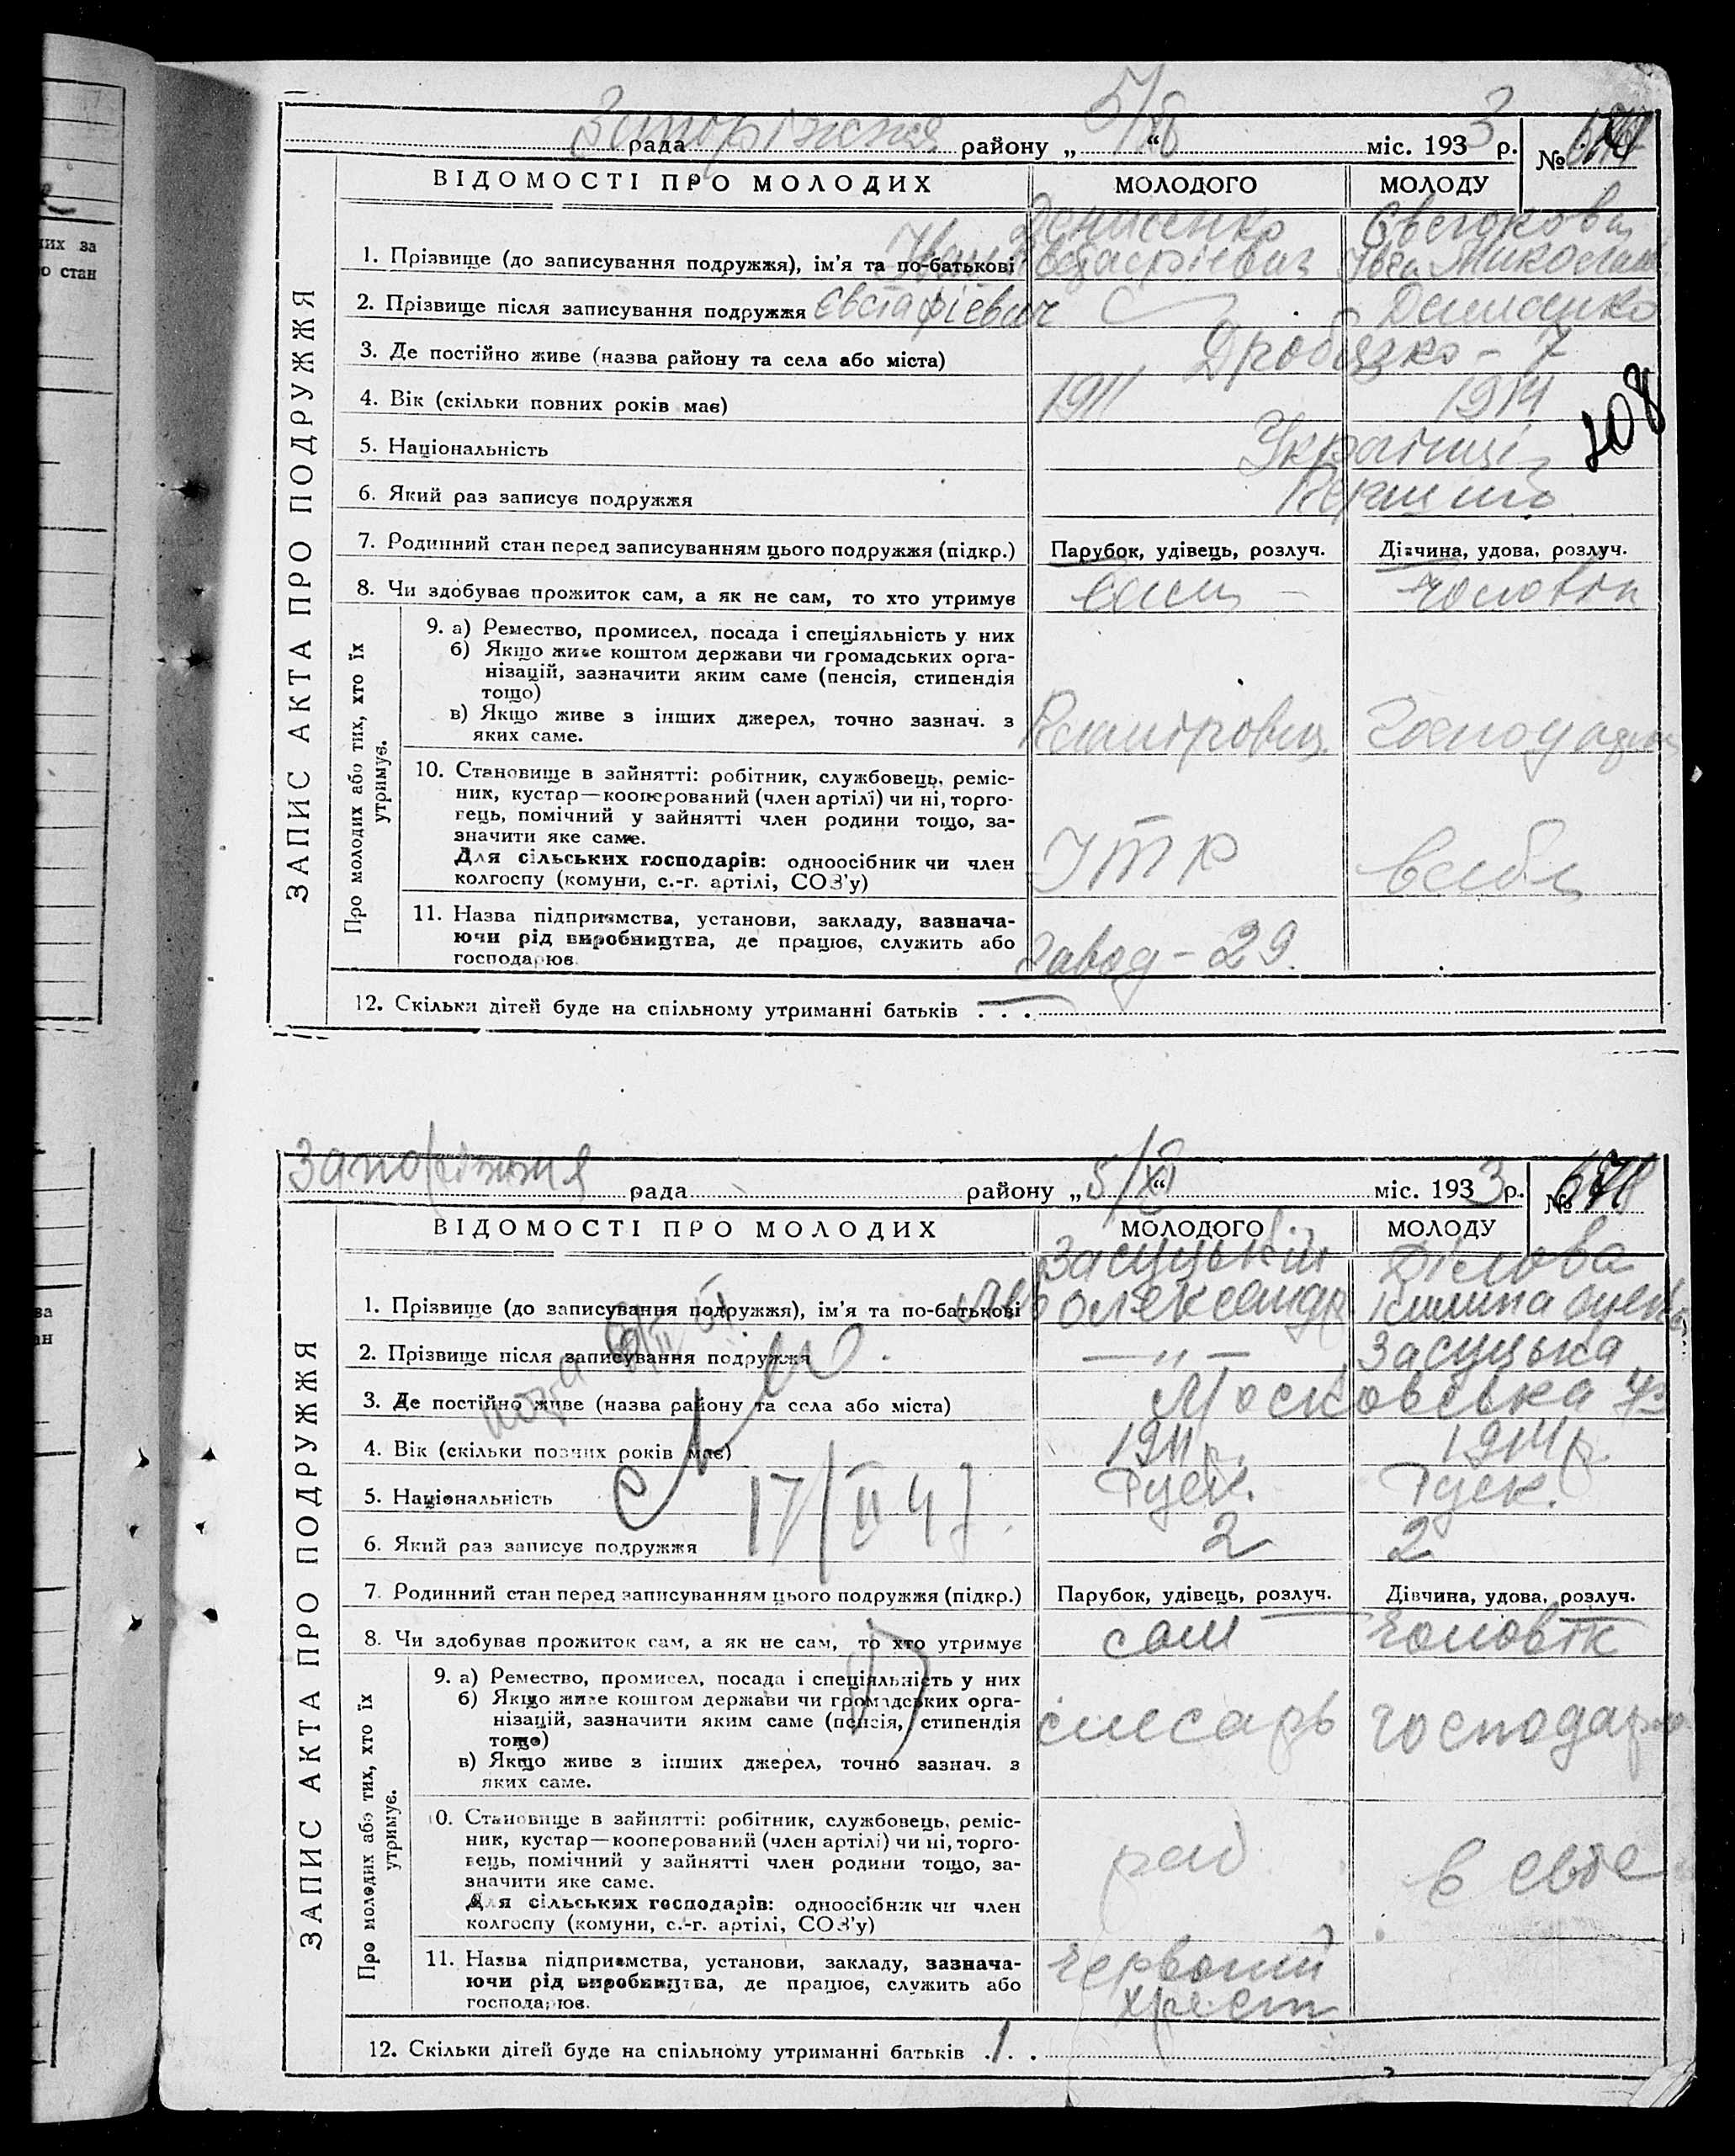 их за
о стан
ва
ан
Запоріжжя рада району „ 5/XI “ міс. 1933 р. №
ВІДОМОСТІ ПРО МОЛОДИХ МОЛОДОГО МОЛОДУ
ЗАПИС АКТА ПРО ПОДРУЖЖЯ
Денисенко
1. Прізвище (до записування подружжя), ім’я та по-батькові Іван Євстафієвич
2. Прізвище після записування подружжя Євстафієвич
3. Де постійно живе (назва району та села або міста) Дробязко - 7
4. Вік (скільки повних років має) 1911 1914
108
5. Національність Українці
6. Який раз записує подружжя Перший
7. Родинний стан перед записуванням цього подружжя (підкр.) Парубок, удівець, розлуч. Дівчина, удова, розлуч.
8. Чи здобуває прожиток сам, а як не сам, то хто утримує сам чоловік
Про молодих або тих, хто їх утримує.
9. а) Ремество, промисел, посада і спеціяльність у них
б) Якщо живе коштом держави чи громадських орга-
нізацій, зазначити яким саме (пенсія, стипендія
тощо)
в) Якщо живе з інших джерел, точно зазнач. з
яких саме.
10. Становище в зайнятті: робітник, службовець, реміс-
ник, кустар—кооперований (член артілі) чи ні, торго-
вець, помічний у зайнятті член родини тощо, за-
значити яке саме.
Для сільських господарів: одноосібник чи член
колгоспу (комуни, с.-г. артілі, СОЗ’у)
ІТР
11. Назва підприємства, установи, закладу, зазнача-
ючи рід виробництва, де працює, служить або
господарює.
Завод - 29.
12. Скільки дітей буде на спільному утриманні батьків . . . —
Запоріжжя рада району „ 5/XI “ міс. 1933 р. №
ВІДОМОСТІ ПРО МОЛОДИХ МОЛОДОГО МОЛОДУ
ЗАПИС АКТА ПРО ПОДРУЖЖЯ
Засуцький Білова
1. Прізвище (до записування подружжя), ім’я та по-батькові Олександр
2. Прізвище після записування подружжя — „ — Засуцька
3. Де постійно живе (назва району та села або міста) Московська
4. Вік (скільки повних років має) 1911 р. 1914 р.
5. Національність Руск. Руск.
17/II 47.
6. Який раз записує подружжя 2 2
7. Родинний стан перед записуванням цього подружжя (підкр.) Парубок, удівець, розлуч. Дівчина, удова, розлуч.
8. Чи здобуває прожиток сам, а як не сам, то хто утримує сам чоловік
Про молодих або тих, хто їх утримує.
9. а) Ремество, промисел, посада і спеціяльність у них
б) Якщо живе коштом держави чи громадських орга-
нізацій, зазначити яким саме (пенсія, стипендія
тощо)
в) Якщо живе з інших джерел, точно зазнач. з
яких саме.
слюсарь господар
10. Становище в зайнятті: робітник, службовець, реміс-
ник, кустар—кооперований (член артілі) чи ні, торго-
вець, помічний у зайнятті член родини тощо, за-
значити яке саме.
Для сільських господарів: одноосібник чи член
колгоспу (комуни, с.-г. артілі, СОЗ’у)
роб
11. Назва підприємства, установи, закладу, зазнача-
ючи рід виробництва, де працює, служить або
господарює.
Червоний
хрест
12. Скільки дітей буде на спільному утриманні батьків . 1 . .